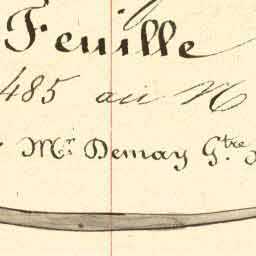 Feuille
485 au N
Mr Demay Gtre